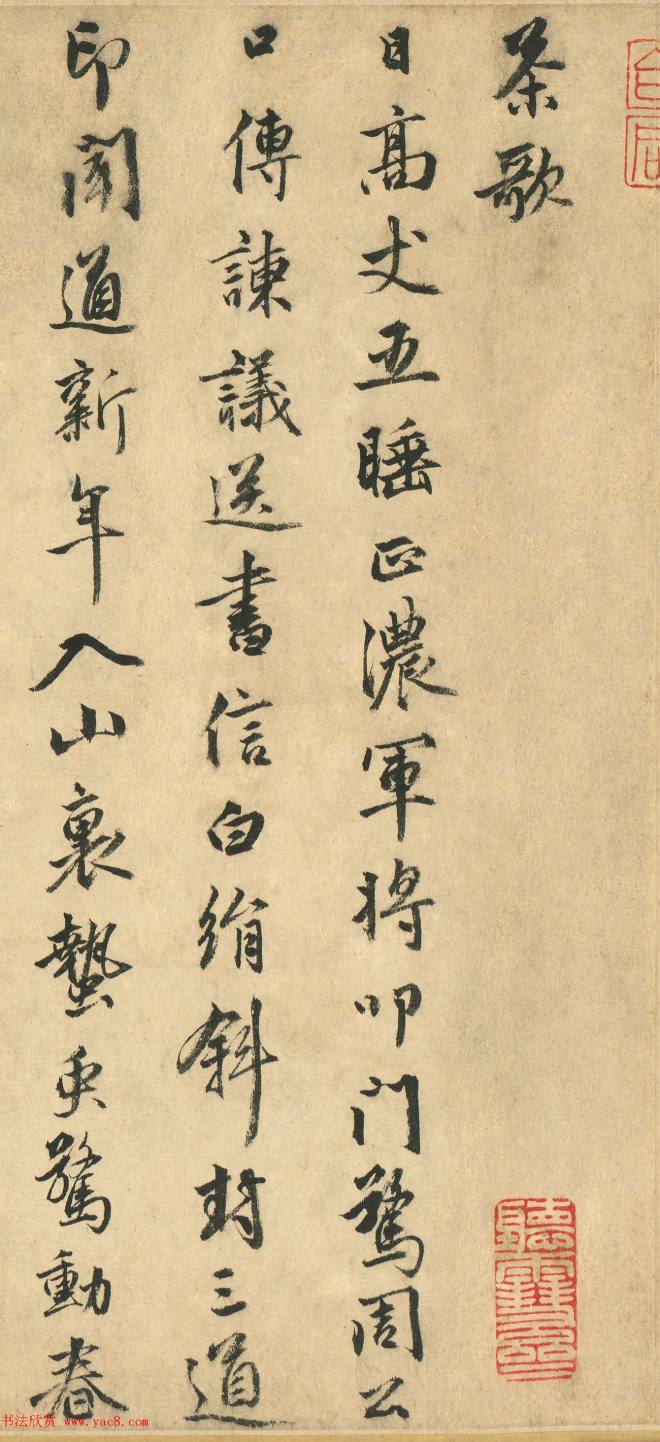 茶歌
日高丈五睡正濃軍將叩門驚周公
口傳諫議送書信白絹斜封三道
印聞道新年入山裏蟄虫驚動春
书法欣赏 www.yac8.com